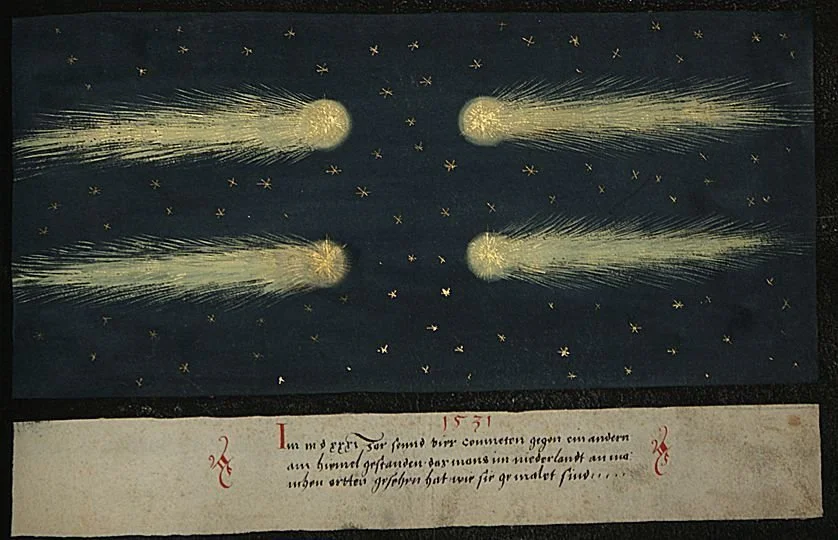 1531
Im m d xxxi Jar sinnd vier commeten gegen ein andern
am himel gestanden das mans im niederlandt an ma:
nchen ortten gesehen hat wie sie gemalet sind.....